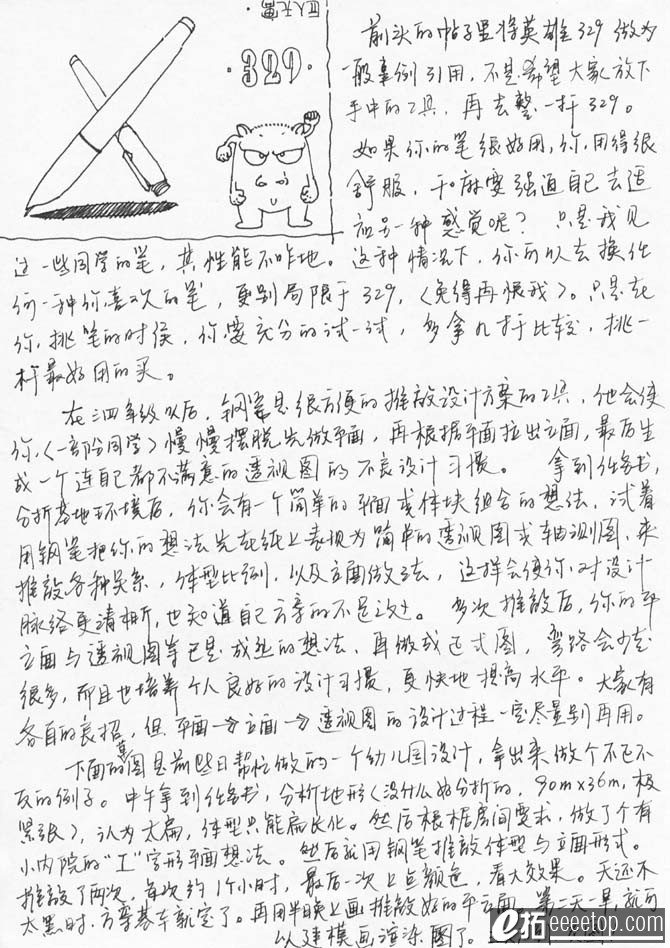 巨人无霸
·329·
前头的帖子里将英雄329做为
一般事例引用,不是希望大家放下
手中的工具,再去整一杆329。
如果你的笔很好用,你用得很
舒服,干麻要强迫自己去适
应另一种感觉呢?只是我见
过一些同学的笔,其性能不咋地。这种情况下,你可以去换任
何一种你喜欢的笔,更别局限于329,(免得再恨我)。只是在
你挑笔的时侯,你要充分的试一试,多拿几杆比较,挑一
杆最好用的买。
在三四年级以后,钢笔是很方便的推敲设计方案的工具,他会使
你(一部份同学)慢慢摆脱先做平面,再根据平面拉出立面,最后生
成一个连自己都不满意的透视图的不良设计习惯。 拿到任务书,
分析基地环境后,你会有一个简单的平面或体块组合的想法,试着
用钢笔把你的想法先在纸上表现为简单的透视图或轴测图,来
推敲各种关系,体型比例,以及立面做法,这样会使你对设计
脉络更清晰,也知道自己方案的不足之处。 多次推敲后,你的平
立面与透视图等已是成熟的想法,再做成正式图,弯路会少走
很多,而且也培养个人良好的设计习惯,更快地提高水平。大家有
各自的良招,但平面→立面→透视图的设计过程一定尽量别再用。
下面的图是前些日帮忙做的一个幼儿园设计,拿出来做个不已不
反的例子。中午拿到任务书,分析地形(没什么好分析的,90m×36m,极
紧张),认为太扁,体型只能扁长化。然后根椐房间要求,做了个有
小内院的"工"字形平面想法。然后就用钢笔推敲体型与立面形式。
推敲了两次,每次约1个小时,最后一次上点颜色,看大效果。天还不
太黑时,方案基本就定了。再用半晚上画推敲好的平立面,第二天一早就可
以建模画渲染图了。
e拓 eeeetop.com